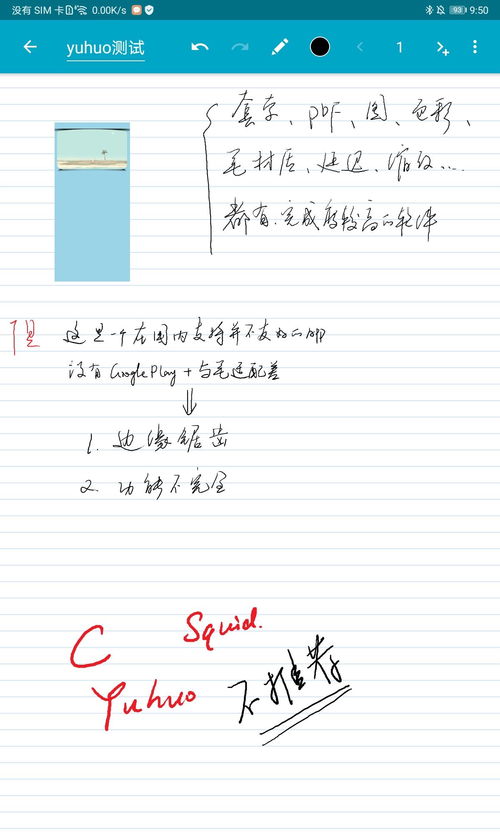 没有 SIM 卡 0.00K/s 93 9:50
yuhuo测试 1
套索、pdf、图、色彩、
笔材质、延迟、缩放...
都有.完成度较高的软件
但 这是一个在国内支持并不友好的
没有GooglePlay+与笔适配差
1. 边缘锯齿
2. 功能不完全
C Squid.
Yuhuo 不推荐